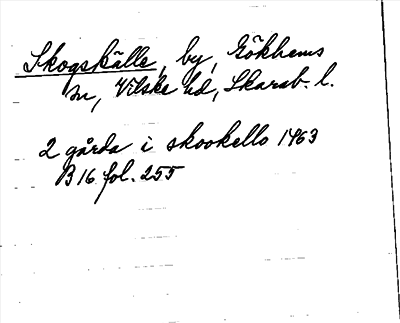 Skogskälle, by, Gökhems
sn, Vilske hd, Skarab. l.
2 gårda i skookello 1463
B 16 fol. 255